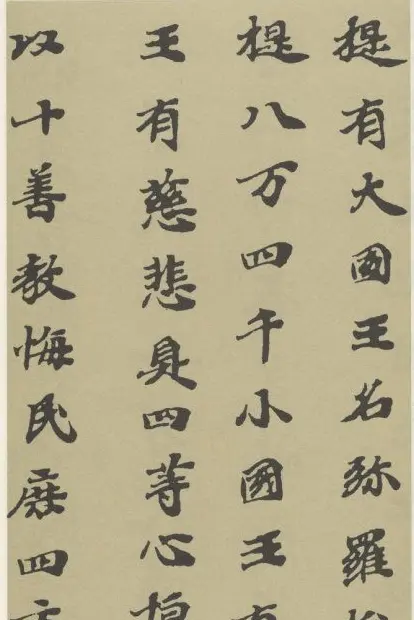 提有大國王名弥羅
提八万四千小國王
王有慈悲具四等心
以十善教悔民庶四